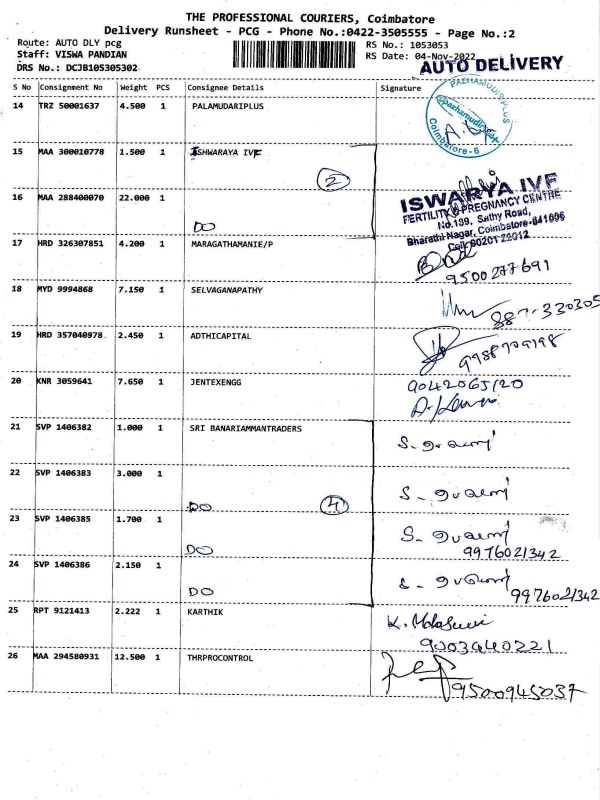 THE PROFESSIONAL COURIERS, Coimbatore
Delivery Runsheet - PCG - Phone No.:0422-3505555 - Page No.:2
Route: AUTO DLY pcg
RS No.: 1053053
Staff: VISWA PANDIAN
RS Date: 04-Nov-2022
DRS No.: DCJB105305302
AUTO DELIVERY
S No Consignment No Weight PCS Consignee Details Signature
14 TRZ 50001637 4.500 1 PALAMUDARIPLUS
PAZHAMUDIR PLUS
Pazhamudir
Coimbatore-6
15 MAA 300010778 1.500 1 ISHWARAYA IVF
2
16 MAA 288400070 22.000 1
DO
ISWARYA IVF
FERTILITY & PREGNANCY CENTRE
No.139, Sathy Road,
Bharathi Nagar, Coimbatore-641006
17 HRD 326307851 4.200 1 MARAGATHAMANIE/P
9500277691
18 MYD 9994868 7.150 1 SELVAGANAPATHY
19 HRD 357040978 2.450 1 ADTHICAPITAL
20 KNR 3059641 7.650 1 JENTEXENGG
21 SVP 1406382 1.000 1 SRI BANARIAMMANTRADERS
22 SVP 1406383 3.000 1
DO 4
23 SVP 1406385 1.700 1
DO
9976021342
24 SVP 1406386 2.150 1
DO
9976021342
25 RPT 9121413 2.222 1 KARTHIK
9003940221
26 MAA 294580931 12.500 1 THRPROCONTROL
9500945037